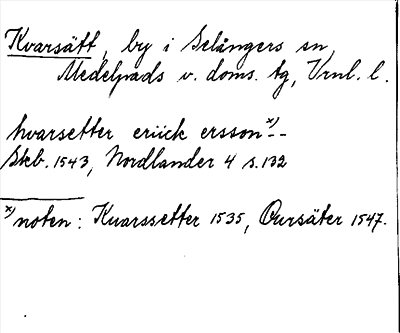 Kvarsätt, by i Selångers sn,
Medelpads v. doms. tg, Vrnl. l.
hvarsetter eriick ersson x) --
Skb. 1543, Nordlander 4 s. 132
x) noten: Kuarssetter 1535, Qvarsäter 1547.